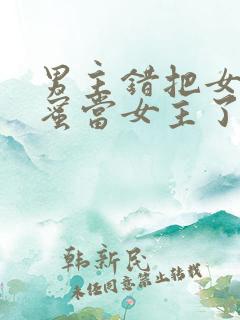 男主错把女
蜜当女主了
韩新民
未经同意禁止转载